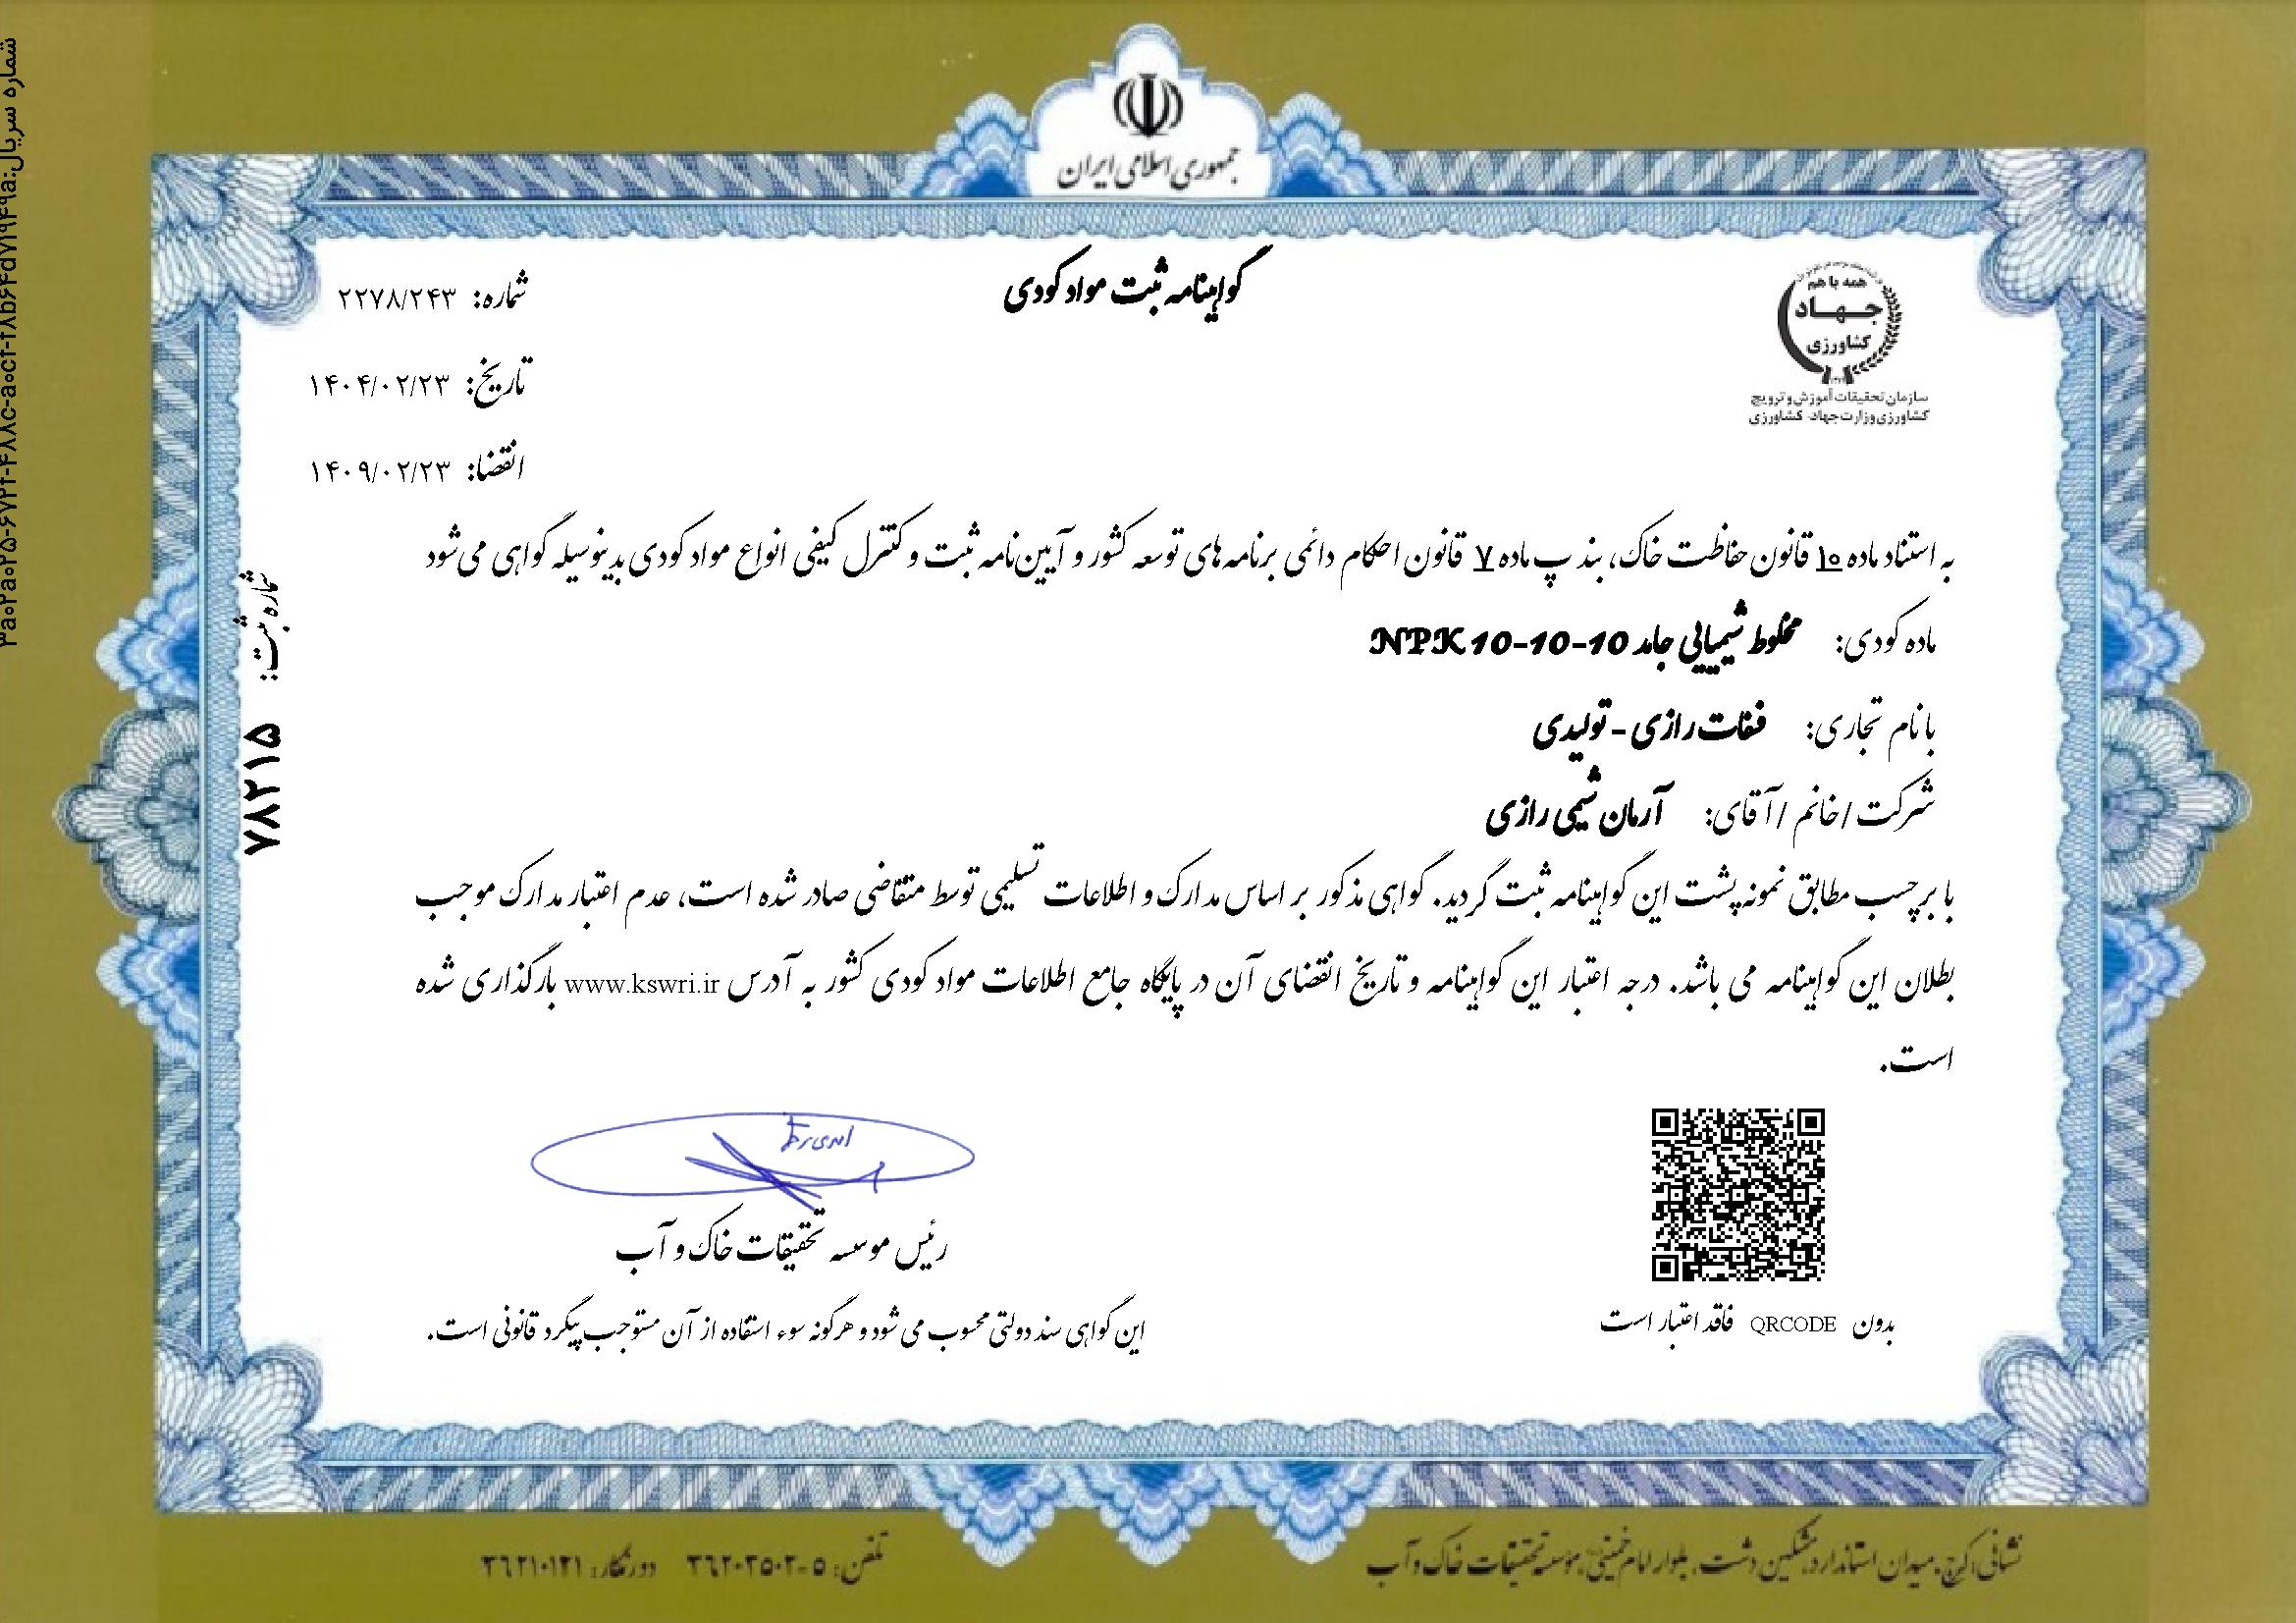 جمهوری اسلامی ایران
همه با هم
جهاد
کشاورزی
سازمان تحقیقات آموزش و ترویج
کشاورزی وزارت جهاد کشاورزی
گواهینامه ثبت مواد کودی
شماره: ۲۲۷۸/۲۴۳
تاریخ: ۱۴۰۴/۰۲/۲۳
انقضا: ۱۴۰۹/۰۲/۲۳
به استناد ماده ۱۰ قانون حفاظت خاک، بند پ ماده ۷ قانون احکام دائمی برنامه های توسعه کشور و آیین‌نامه ثبت و کنترل کیفی انواع مواد کودی بدینوسیله گواهی می‌شود
ماده کودی: مخلوط شیمیایی جامد NPK 10-10-10
با نام تجاری: فقات رازی - تولیدی
شرکت / خانم / آقای: آرمان شیمی رازی
با برچسب مطابق نمونه پشت این گواهینامه ثبت گردید. گواهی مذکور بر اساس مدارک و اطلاعات تسلیمی توسط متقاضی صادر شده است، عدم اعتبار مدارک موجب
بطلان این گواهینامه می باشد. درجه اعتبار این گواهینامه و تاریخ انقضای آن در پایگاه جامع اطلاعات مواد کودی کشور به آدرس www.kswri.ir بارگذاری شده
است.
شماره ثبت: ۷۸۲۱۵
رئیس موسسه تحقیقات خاک و آب
بدون QRCODE فاقد اعتبار است
این گواهی سند دولتی محسوب می شود و هرگونه سوء استفاده از آن مستوجب پیگرد قانونی است.
نشانی: کرج. میدان استاندارد، مشکین دشت. بلوار امام خمینی، موسسه تحقیقات خاک و آب
تلفن: ۵-۳۶۲۰۳۵۰۲ دورنگار: ۳۶۲۱۰۱۲۱
شماره سریال: